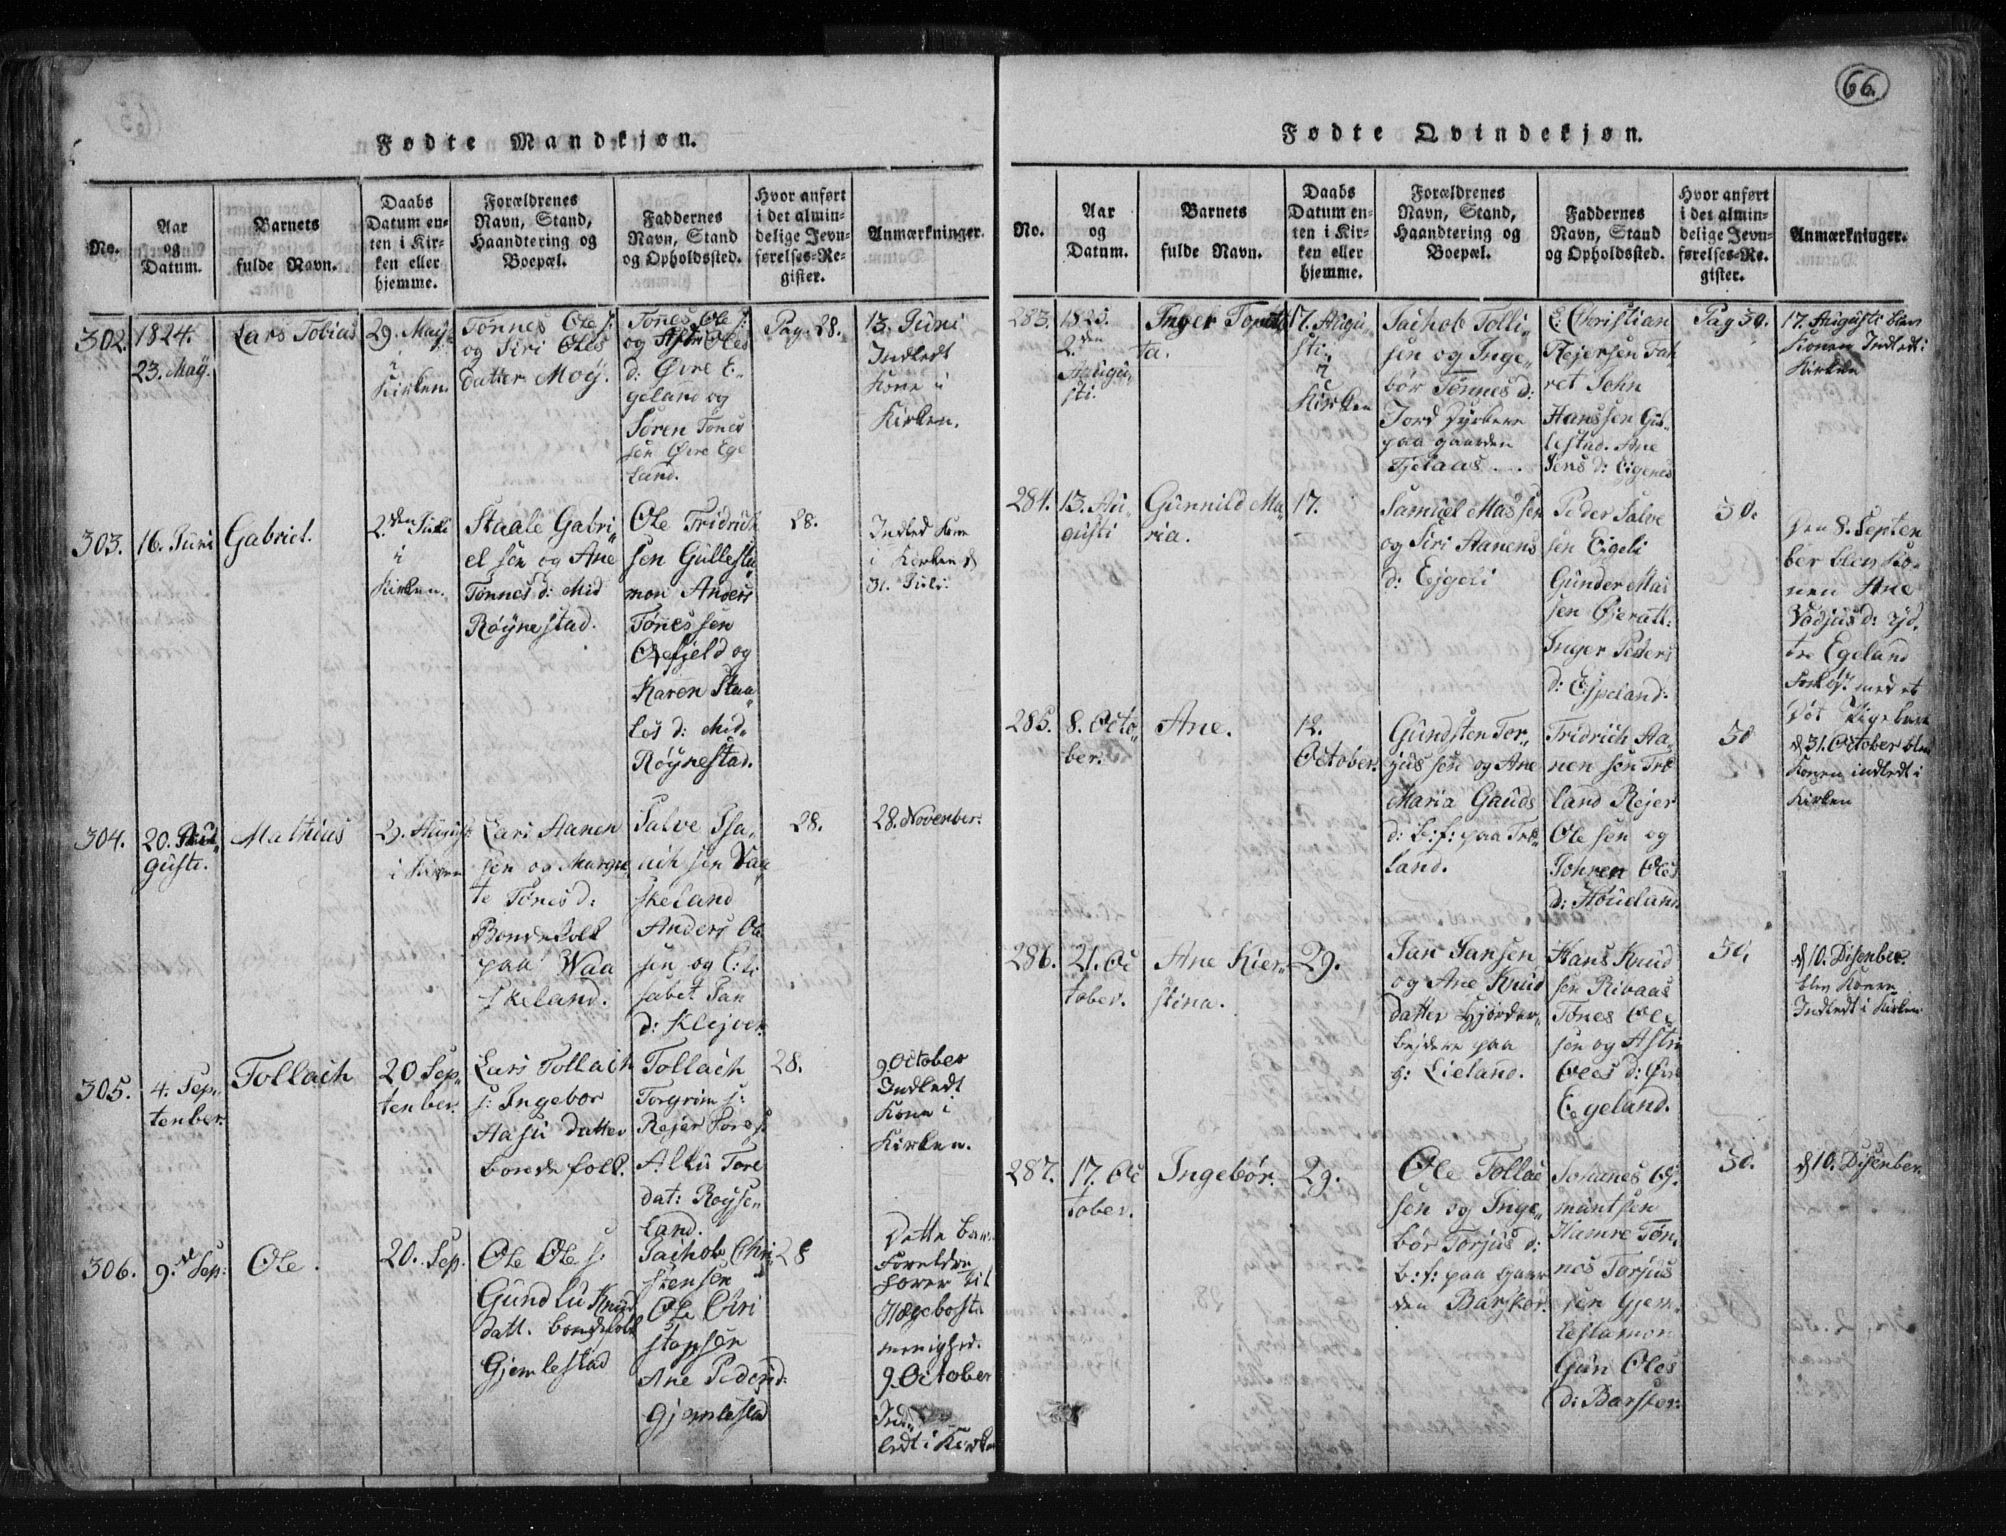 66.
Fødte Mandkjøn.
No.
Aar
og
Datum.
Barnets
fulde Navn.
Daabs
Datum en-
ten i Kir-
ken eller
hjemme.
Forældrenes
Navn, Stand,
Haandtering og
Boepæl.
Faddernes
Navn, Stand
og Opholdssted.
Hvor anført
i det almin-
delige Jevn-
førelses-Re-
gister.
Anmærkninger.
302.
1824.
23. Maÿ.
Lars Tobias
29. Maÿ
i
Kirken.
Tønnes Ole s:
og Siri Oles
datter Moÿ.
Tønes Ole s:
og Oles
d: Øvre E„
geland og
Søren Tønes
sen Øvre Ege
land.
Pag. 28.
13. Juni
Indledt
Kone i
Kirken.
303.
16. Juni
Gabriel.
2.den Juli
i
Kirken.
Staale Gabri„
el sen og Ane
Tønnes d: Mid
Røÿnestad.
Ole Fridrich
sen Gullesta„
mon Anders
Tønessen
Øxefjeld og
Karen Staa„
les d: Mid„
Røÿnestad.
28.
Indled Kone
i Kirken d
31. Juli.
304.
20. Au„
gusti.
Mathias
29. August
i Kirken
Lars Aanen
sen og Margre„
te Tønes d:
Bondefolk
paa Waa
skeland.
Salve Isa„
ach sen Vaa„
skeland
Anders Ole
sen og Eli
sabet Jan
d: Klejven
28.
28. November.
305.
4. Sep„
tenber.
Tollach
20 Sep„
tenber.
Lars Tollach
s: Ingebor
Aasu datter
bondefolk.
Tollach
Torgrim s:
Rejer Tore s:
Alli Tore
dat: Roÿse„
land.
28.
9 October
Indledt
Kone i
Kirken.
306.
9.d Sep:
Ole.
20. Sep.
Ole Ole s:
Gundlu Knud
datt. bondefolk
Gjemlestad
Jachob Chri
stensen
Ole Chri
stopsen
Ane Peders d:
Gjemlestad
28
Dette barns
Foreldre
hører til
Hægebostd
menighed.
9. October
Ind„
ledt i Kirken
Fødte Qvindekjøn.
No.
Aar
og
Datum.
Barnets
fulde Navn.
Daabs
Datum en-
ten i Kir-
ken eller
hjemme.
Forældrenes
Navn, Stand,
Haandtering og
Boepæl.
Faddernes
Navn, Stand
og Opholdssted.
Hvor anført
i det almin-
delige Jevn-
førelses-Re-
gister.
Anmærkninger.
283.
1825.
2.den
Augu„
sti.
Inger
ta.
17. Augu„
sti.
i
Kirken
Jachob Tolli„
sen og Inge„
bør Tønnes d:
Jord Dyrkere
paa gaarden
Tjelaas
E. Christian
Rejersen Fah
ret John
Hanssen Gul„
lestad. Ane
Jens d: Eigenes
Pag 50.
17. Augusti blev
Konen Indledt i
Kirken
284.
13. Au„
gusti
Gunnild Ma„
ria.
17.
Samuel Massen
og Siri Aanens
d: Ejgeli
Peder Salve
sen Eigeli
Gunder Mas
sen
Inger Peders
d: Espeland.
50.
Den 8. Septen
ber blev Ko„
nen Ane
Vadjus d: yd„
tre Egeland
med et
Pige barn
285.
8. Octo„
ber.
Ane.
12.
October.
Gundsten Tor„
jus sen og Ane
Maria Gauds
d: b: f: paa Tre„
land.
Fridrich Aa„
nen sen Tre
land Rejer
Ole sen og
Tohren Oles
d: Houeland.
50
d 31. October blev
Konen indledt i
Kirken
286.
21. Oc
tober.
Ane Kier„
stina.
29.
Jan Jansen
og Ane Knud
datter Hjorder„
bejdere paa
g: Lieland.
Hans Knud
sen Ribaas
Tønes Ole
sen og Astri
Oles d: Øvre
Egeland.
50.
d 10. Disenber.
blev Konen
Indledt i Kirken
287.
17. Oc
tober.
Ingebør.
29.
Ole Tollac
sen og Inge„
bør Torjus d:
b: f: paa gaar
den Barskor.
Johanes Os„
muntsen
Hamre Tøn„
nes Torjus
sen Gjem„
lestamon
Gun Oles
d: Barskor:
50.
d 10. Disenber.